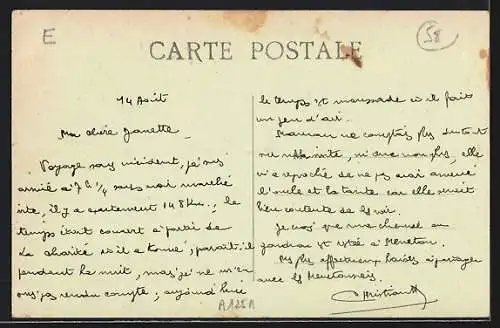 E
58
CARTE POSTALE
14 Août
Ma chère Janette
Voyage sans incident, je suis
arrivé à 7h 1/4 sans avoir marché
vite, il y a exactement 148 Km, le
temps était couvert à partir de
La charité où il a tonné, paraît-il
pendant la nuit, mais je ne m'en
suis pas rendu compte, aujourd'hui
A125A
le temps est maussade et il fait
un peu d'air.
Maman ne comptait plus du tout
sur ma visite, ni eux non plus, elle
m'a reproché de ne pas avoir amené
l'oncle et la tante car elle serait
bien contente de les voir.
Je crois que ma chemise
est restée à Menetou.
Mes plus affectueux baisers à partager
avec les
Christian